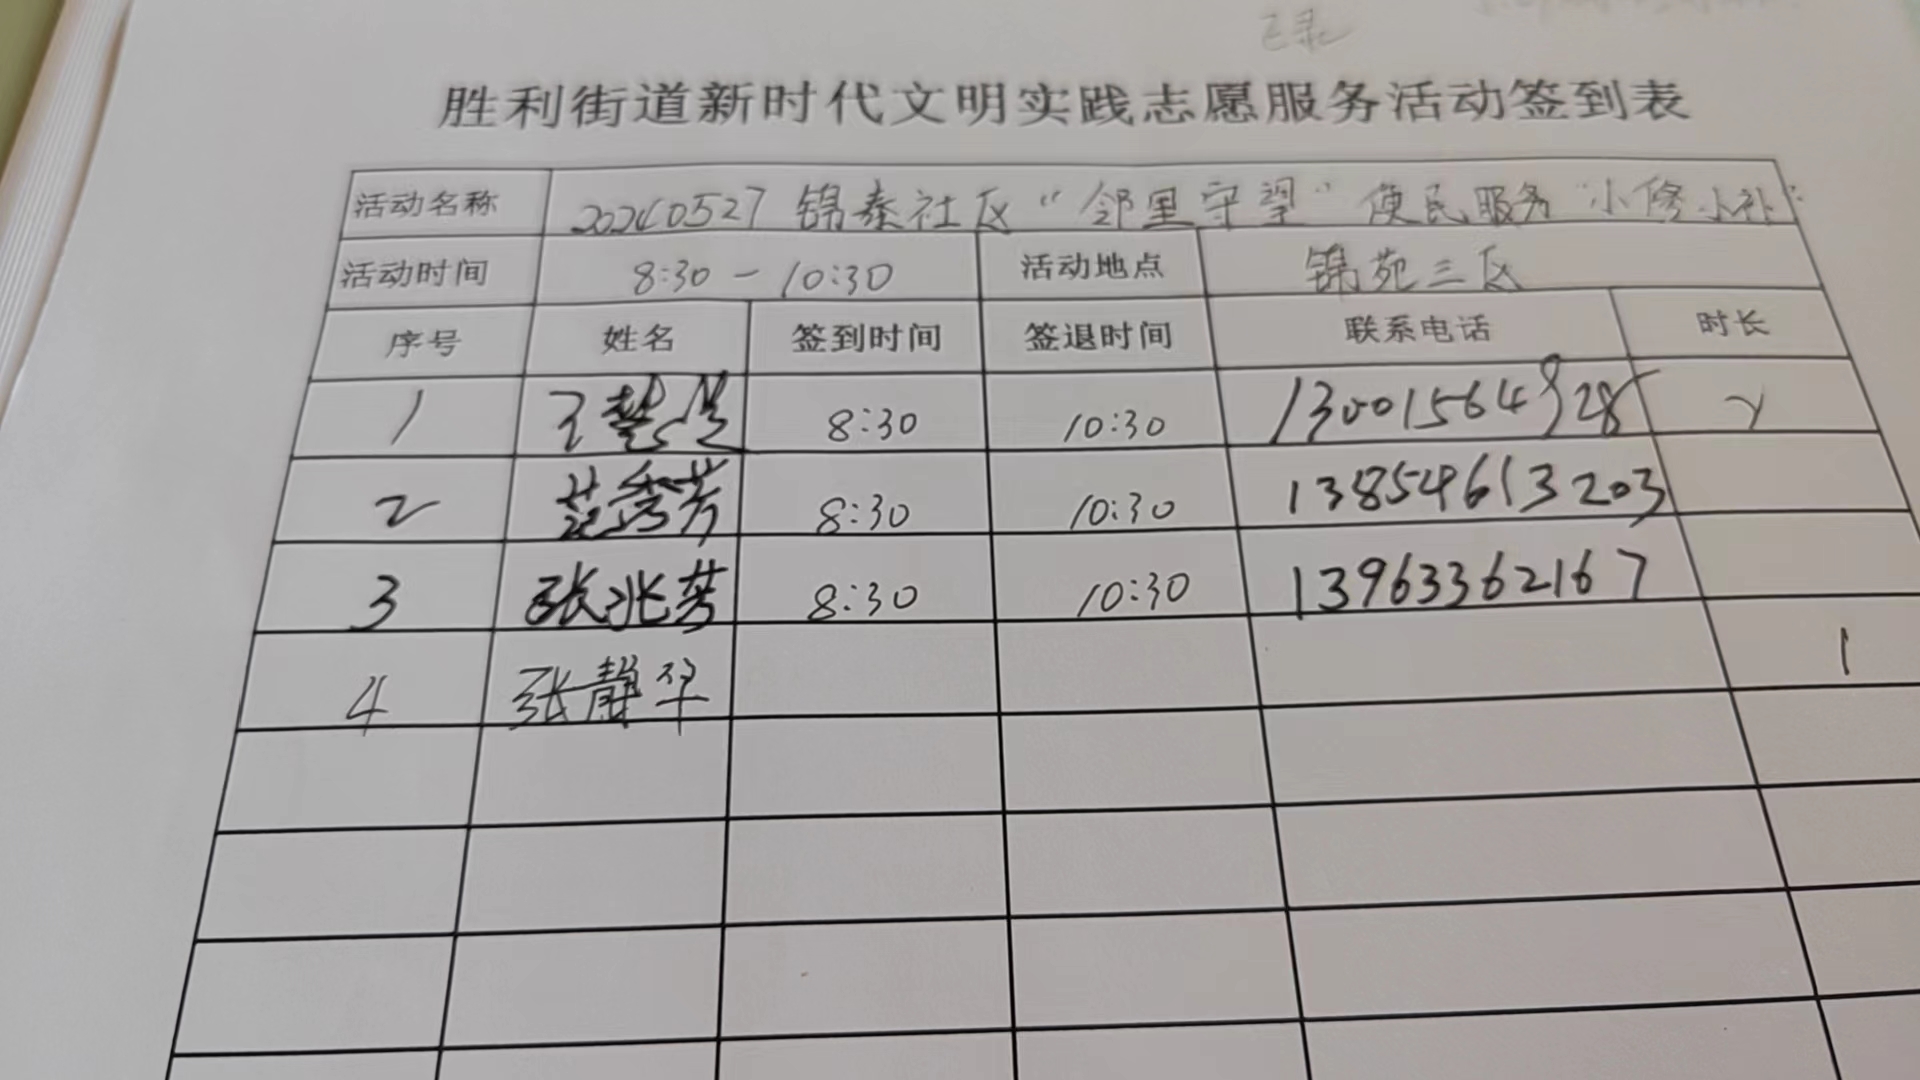 已录
胜利街道新时代文明实践志愿服务活动签到表
活动名称 20240527 锦泰社区“邻里守望”便民服务“小修小补”
活动时间 8:30-10:30 活动地点 锦苑三区
序号 姓名 签到时间 签退时间 联系电话 时长
1 王 8:30 10:30 13001564928
2 范秀芳 8:30 10:30 13854613203
3 张兆芳 8:30 10:30 13963362167
4 张静华 1